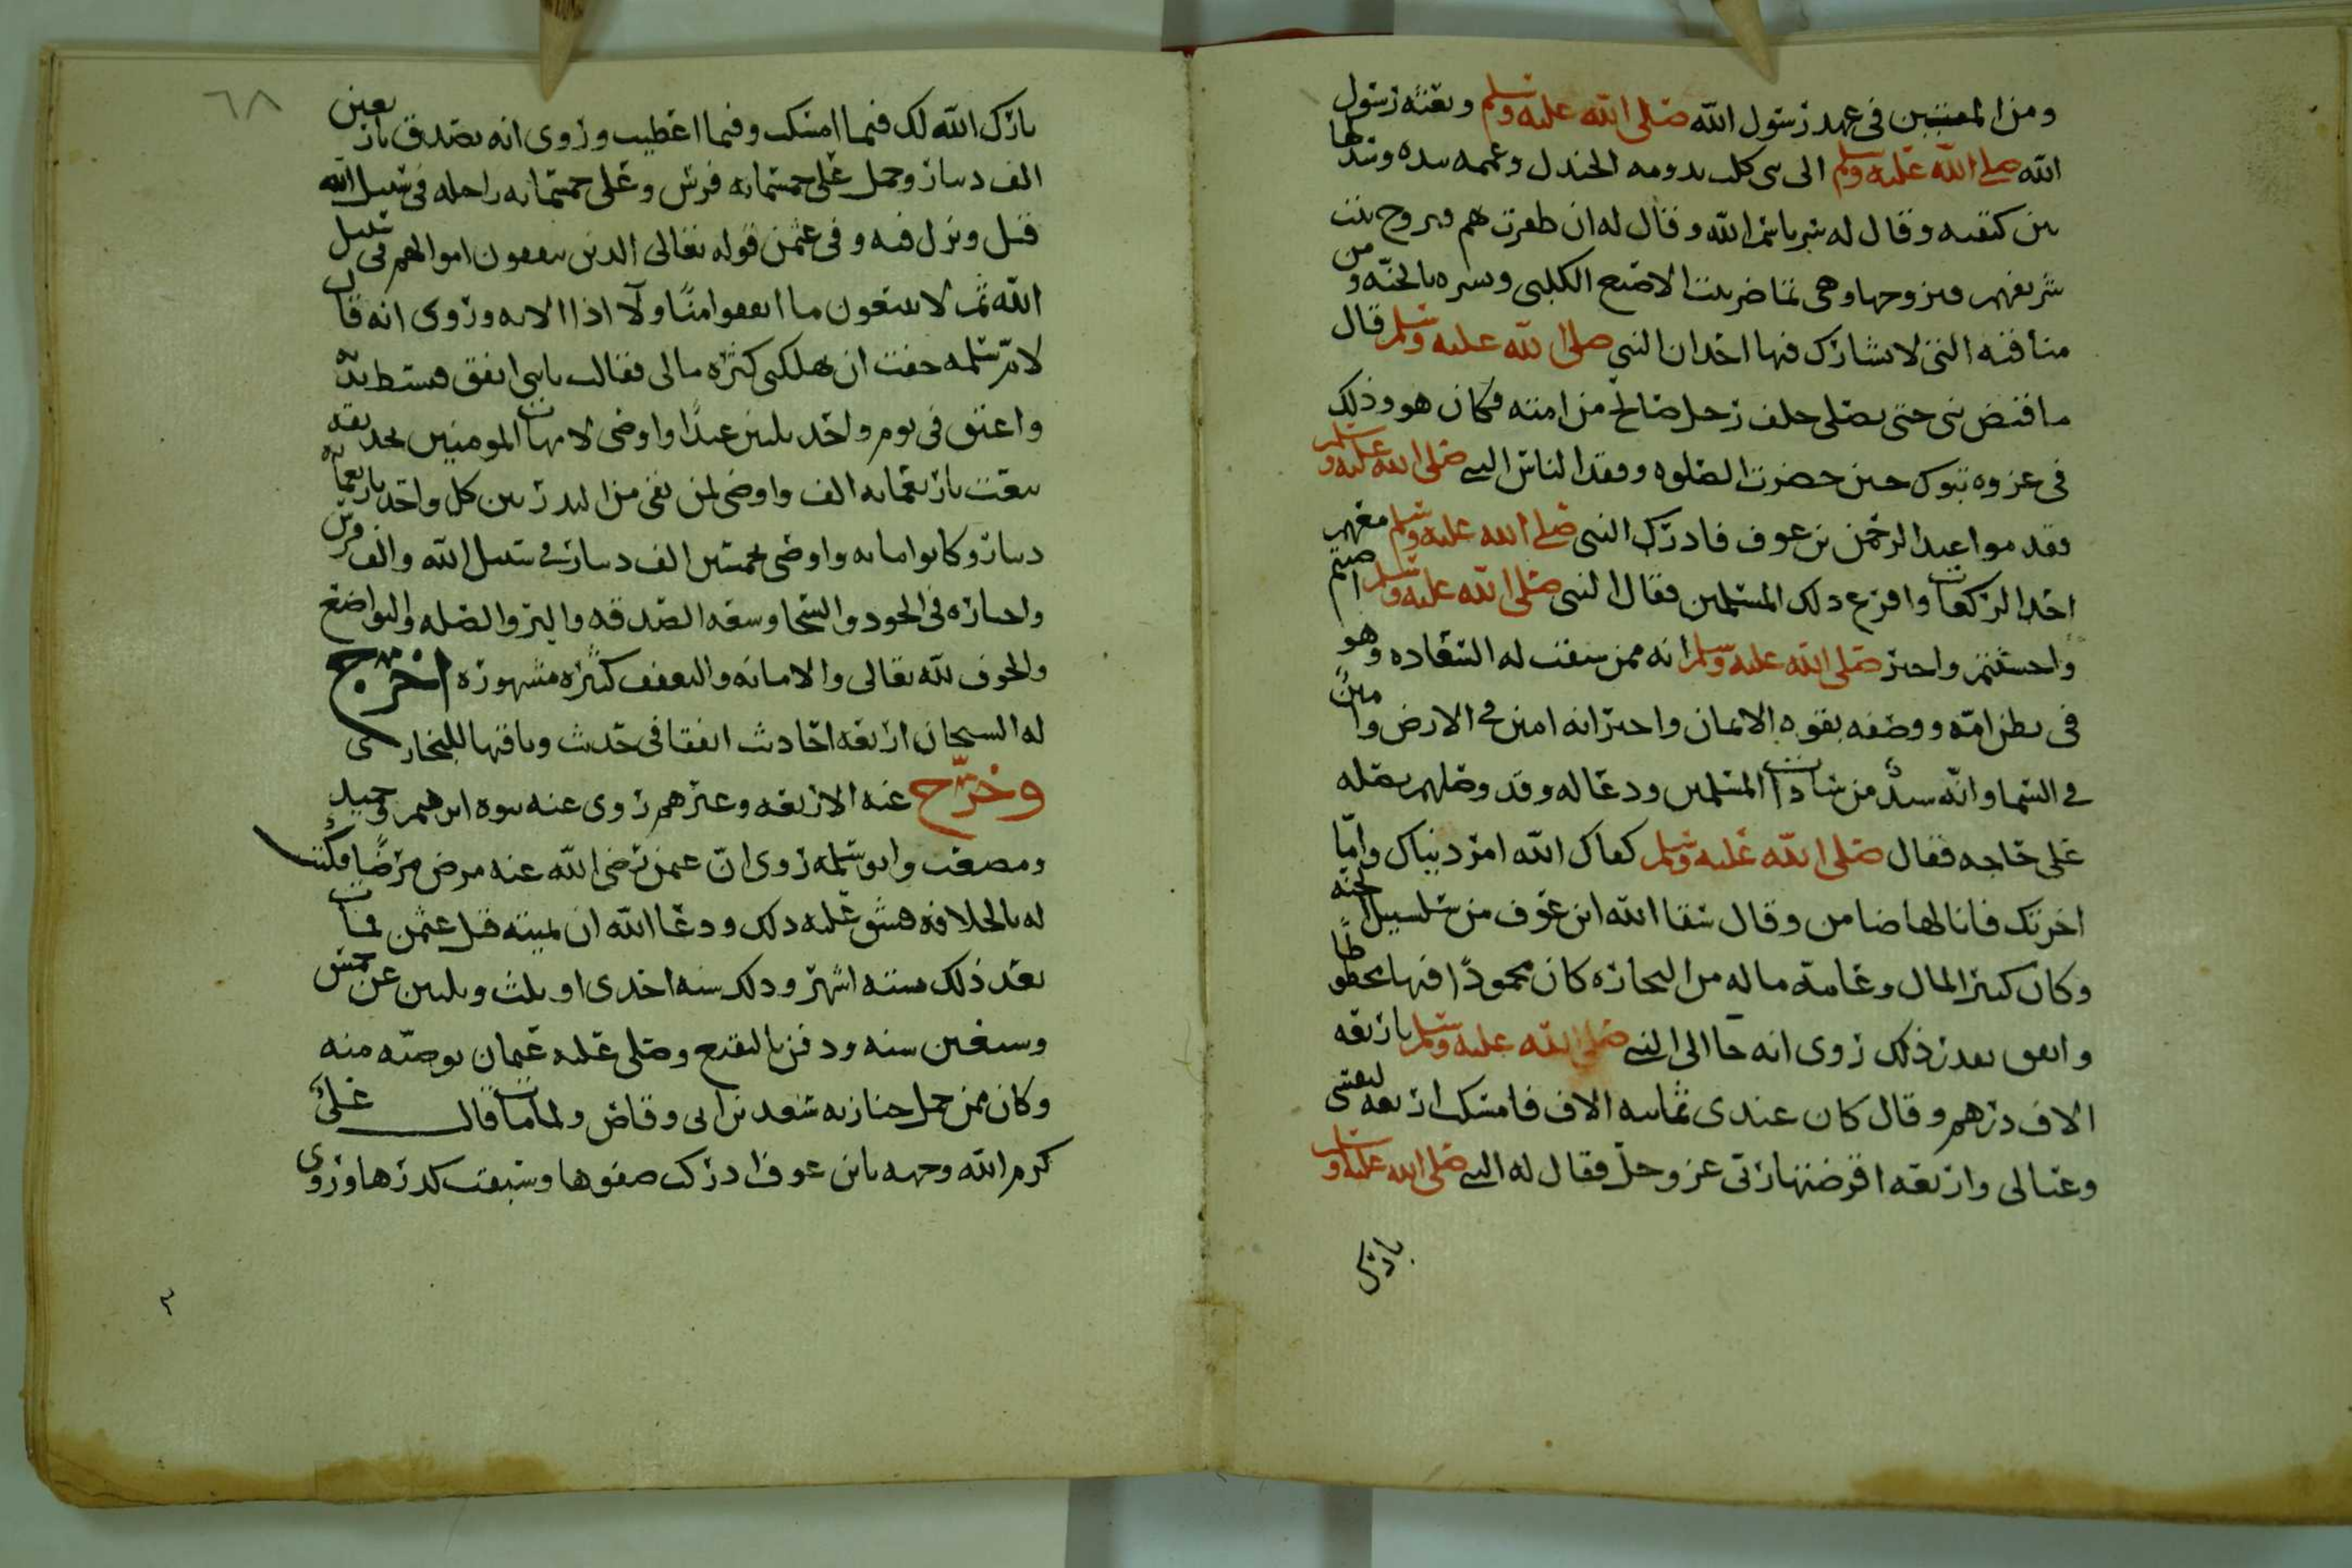 ومن المفتيين في عهد رسول الله صلى الله عليه وسلم وبعثه رسول
الله صلى الله عليه وسلم الى بني كلب بدومة الجندل وعممه بيده وسدلها
بين كتفيه وقال له سر باسم الله وقال له ان ظفرت بهم فتزوج بنت
شريفهم فتزوجها وهي تماضر بنت الاصبغ الكلبي وبشره بالجنة ومن
مناقبه التي لا يشارك فيها احد ان النبي صلى الله عليه وسلم قال
ما قبض نبي حتى يصلي خلف رجل صالح من امته فكان هو وذلك
في غزوة تبوك حين حضرت الصلوة وفقد الناس النبي صلى الله عليه وسلم
فقدموا عبد الرحمن بن عوف فادرك النبي صلى الله عليه وسلم معهم
احد الركعات وافزع ذلك المسلمين فقال النبي صلى الله عليه وسلم اصبتم
واحسنتم واخبر صلى الله عليه وسلم انه ممن سبقت له السعادة وهو
في بطن امه ووصفه بقوة الايمان واخبر انه امين في الارض وامين
في السما وانه سيد من سادات المسلمين ودعا له وقد وصلهم بصلة
على حاجة فقال صلى الله عليه وسلم كفاك الله امر دنياك واما
اخرتك فانا لها ضامن وقال سقا الله ابن عوف من سلسبيل الجنة
وكان كثير المال وعامة ماله من التجارة كان محمودا فيها محظوظا
وانفق بعد ذلك روى انه جا الى النبي صلى الله عليه وسلم باربعة
الاف درهم وقال كان عندي ثمانية الاف فامسكت اربعة لنفسي
وعيالي واربعة اقرضتها ربي عز وجل فقال له النبي صلى الله عليه وسلم
بارك
٦٨
بارك الله لك فيما امسكت وفيما اعطيت وروى انه تصدق باربعين
الف دينار وحمل على خمسمائة فرس وعلى خمسمائة راحلة في سبيل الله
قيل ونزل فيه وفي عثمن قوله تعالى الذين ينفقون اموالهم في سبيل
الله ثم لا يتبعون ما انفقوا منا ولا اذا الاية وروى انه قال
لام سلمة خفت ان تهلكني كثرة مالي فقالت يابني انفق فبسط يده
واعتق في يوم واحد ثلثين عبدا واوصى لامهات المومنين بحديقة
بيعت باربعمائة الف واوصى لمن بقي من اهل بدر بين كل واحد باربعمائة
دينار وكانوا مائة واوصى بخمسين الف دينار في سبيل الله والف فرس
واخباره في الجود والسخا وسعة الصدقة والبر والصلة والتواضع
والخوف لله تعالى والامانة والتعفف كثيرة مشهورة اخرج
له الشيخان اربعة احاديث اتفقا في حديث وباقيها للبخاري
وخرج عنه الاربعة وغيرهم روى عنه بنوه ابرهيم وحميد
ومصعب وابو سلمة روى ان عثمن رضي الله عنه مرض مرضا فكتب
له بالخلافة فشق عليه ذلك ودعا الله ان يميته قبل عثمن فمات
بعد ذلك بستة اشهر وذلك سنة احدى او ثلث وثلثين عن خمس
وسبعين سنة ودفن بالبقيع وصلى عليه عثمان بوصية منه
وكان ممن حمل جنازته سعد بن ابي وقاص ولما مات قال علي
كرم الله وجهه يابن عوف ادركت صفوها وسبقت كدرها وروى